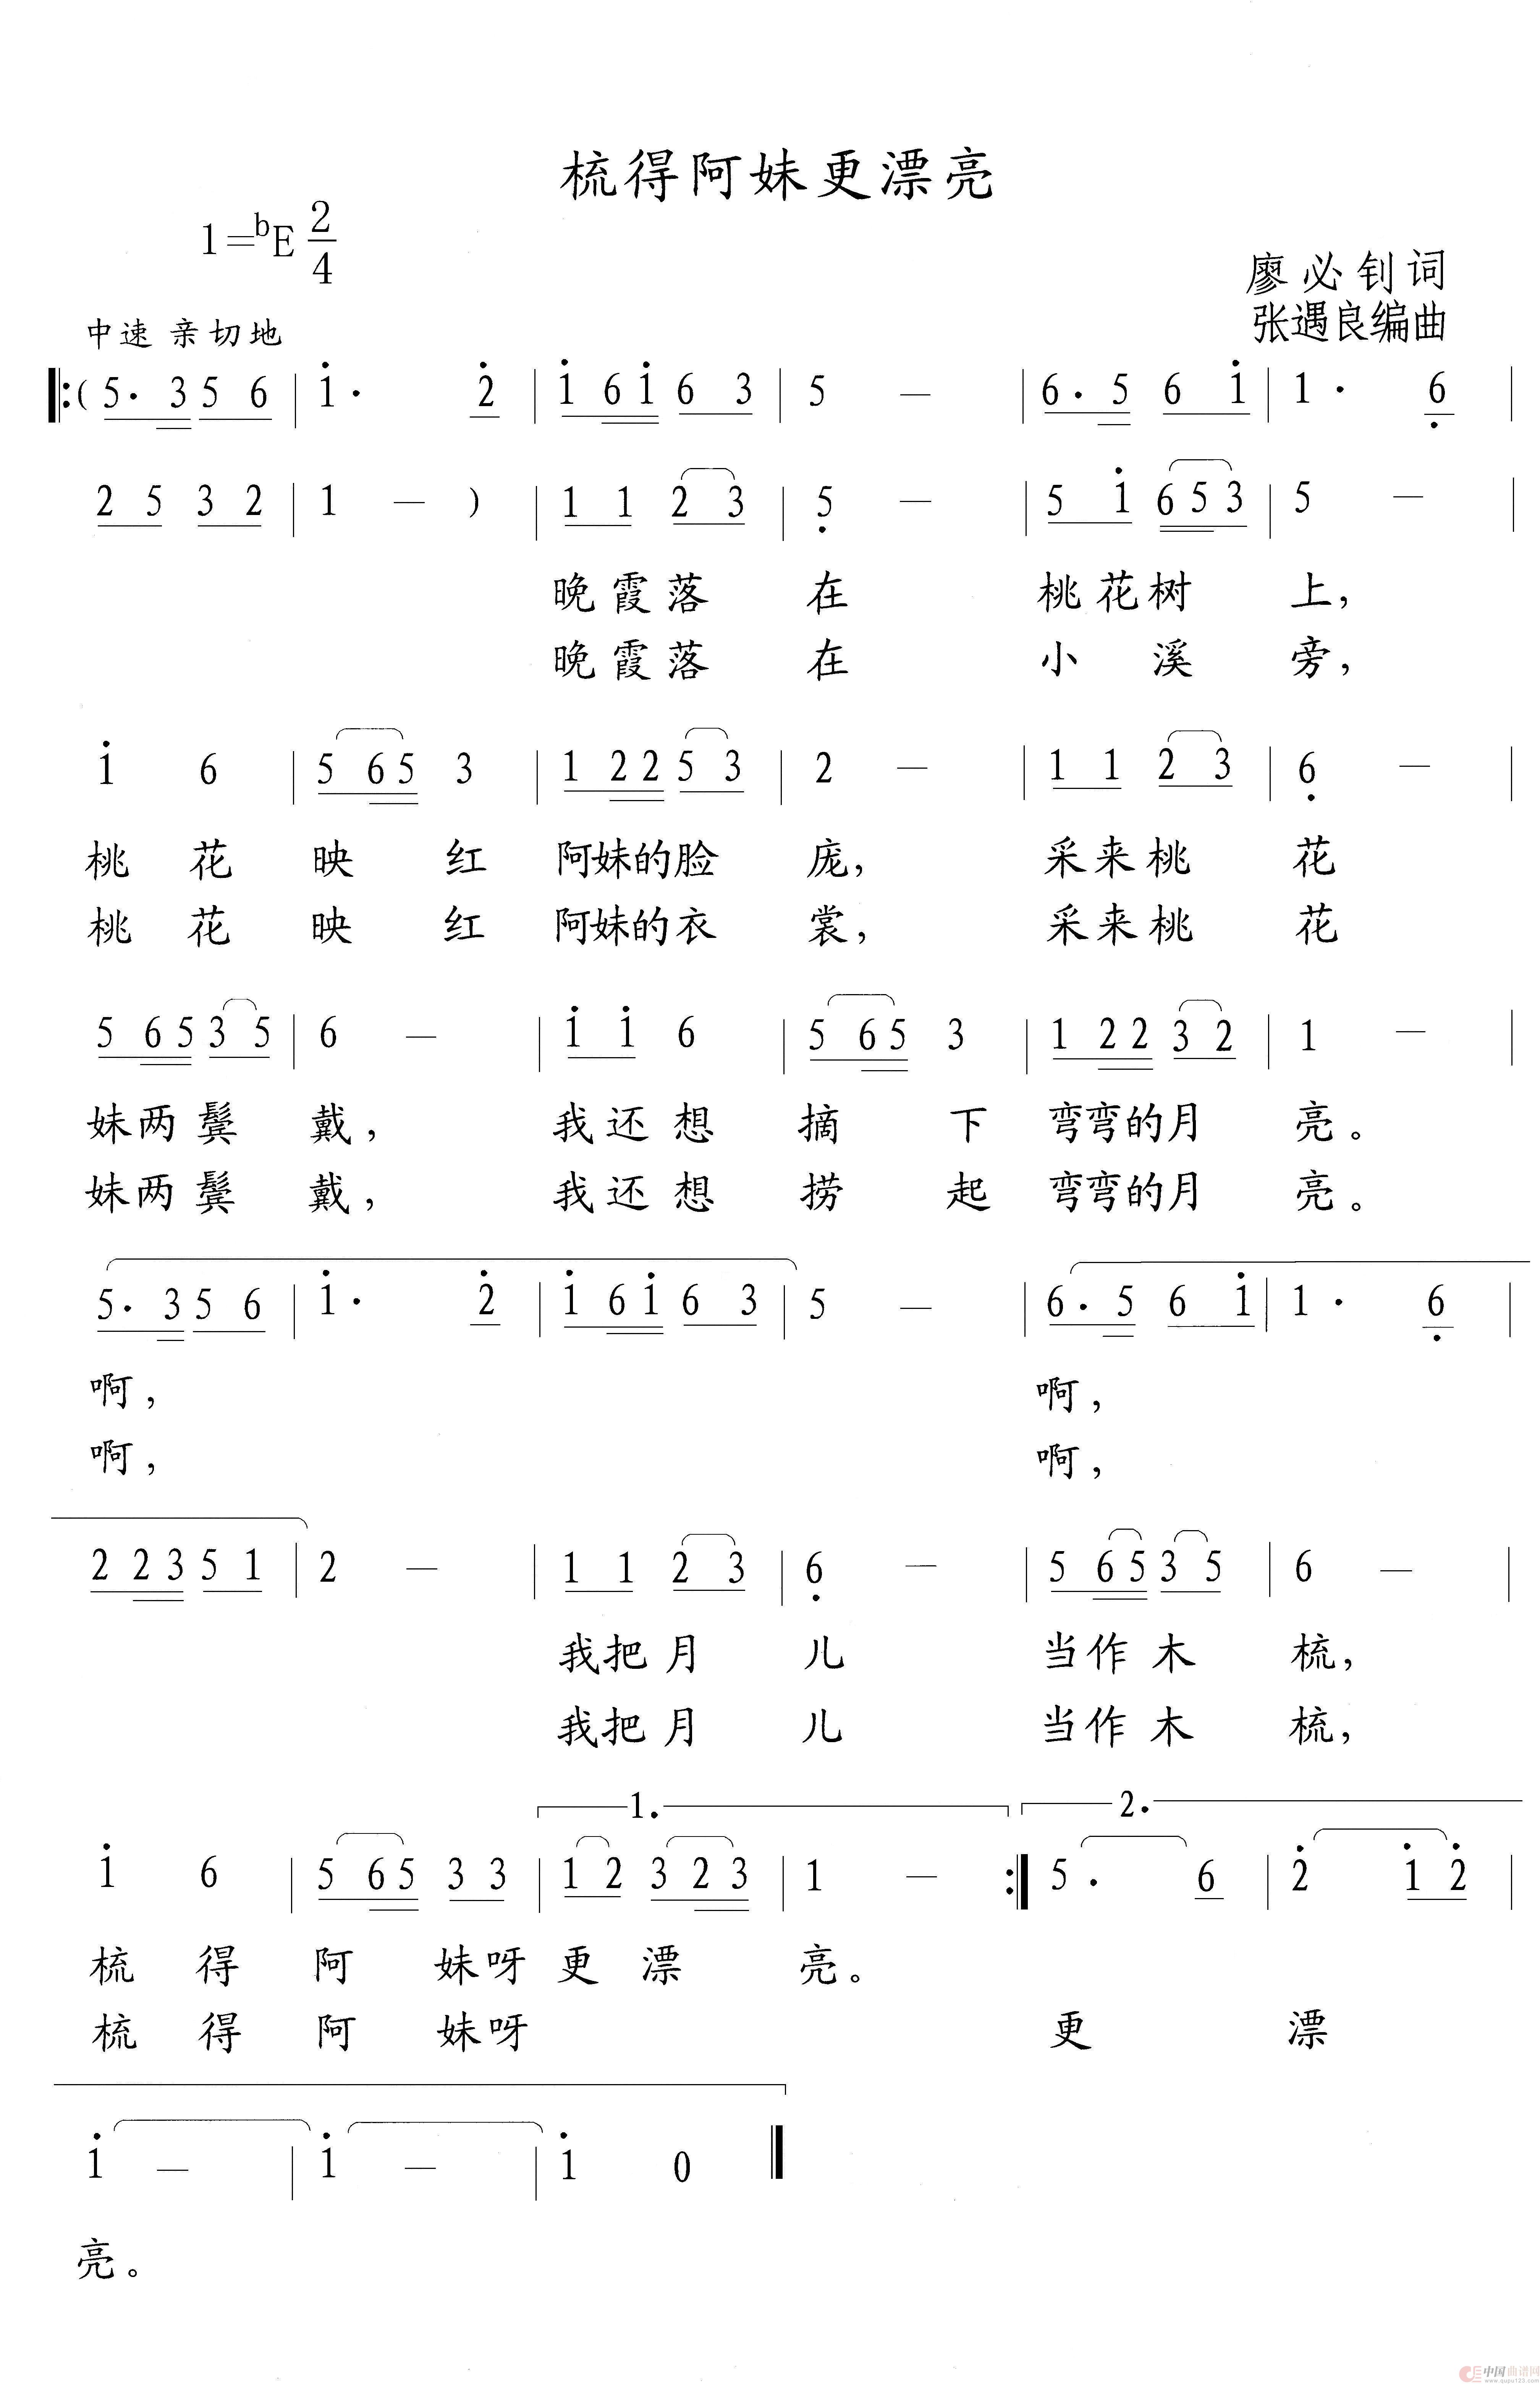 梳得阿妹更漂亮
1=bE 2/4
廖必钊词
中速 亲切地
张遇良编曲
( 5. 3 5 6 | i. 2 | i 6 i 6 3 | 5 — | 6. 5 6 i | 1. 6 |
2 5 3 2 | 1 — ) | 1 1 2 3 | 5 — | 5 i 6 5 3 | 5 — |
晚霞落 在 桃花树 上,
晚霞落 在 小 溪 旁,
i 6 | 5 6 5 3 | 1 2 2 5 3 | 2 — | 1 1 2 3 | 6 — |
桃 花 映 红 阿妹的脸 庞, 采来桃 花
桃 花 映 红 阿妹的衣 裳, 采来桃 花
5 6 5 3 5 | 6 — | i i 6 | 5 6 5 3 | 1 2 2 3 2 | 1 — |
妹两鬓 戴, 我还想 摘 下 弯弯的月 亮。
妹两鬓 戴, 我还想 捞 起 弯弯的月 亮。
5. 3 5 6 | i. 2 | i 6 i 6 3 | 5 — | 6. 5 6 i | 1. 6 |
啊, 啊,
啊, 啊,
2 2 3 5 1 | 2 — | 1 1 2 3 | 6 — | 5 6 5 3 5 | 6 — |
我把月 儿 当作木 梳,
我把月 儿 当作木 梳,
1. 2.
i 6 | 5 6 5 3 3 | 1 2 3 2 3 | 1 — :| 5. 6 | 2 i 2 |
梳 得 阿 妹呀更漂 亮。
梳 得 阿 妹呀 更 漂
i — | i — | i 0
亮。
中国曲谱网
www.qupu123.com